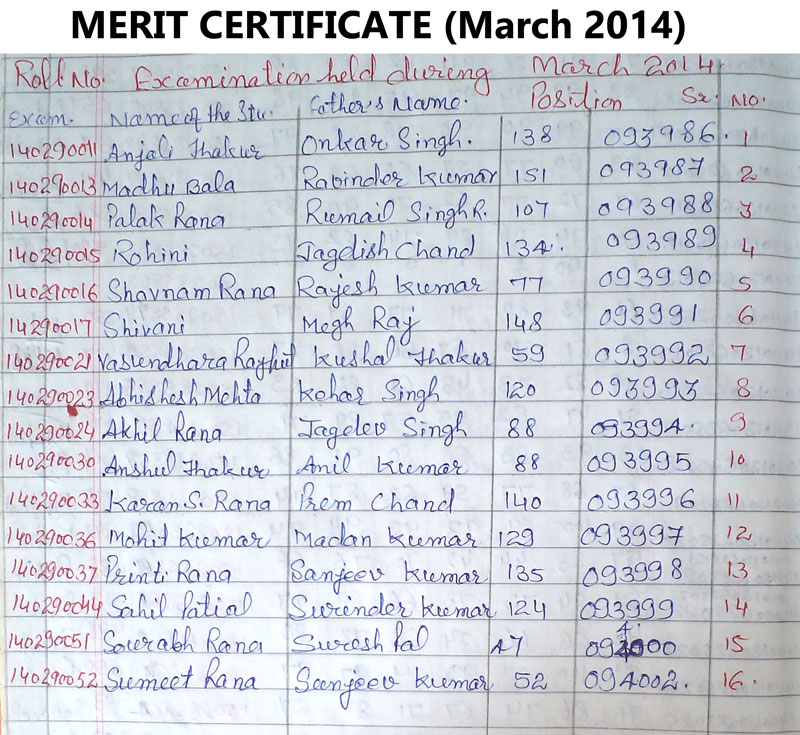 MERIT CERTIFICATE (March 2014)
Roll No. Examination held during March 2014.
Exam. Name of the Stu. Father's Name. Position Sr. No.
140290011 Anjali Thakur Onkar Singh. 138 093986. 1
140290013 Madhu Bala Rabinder Kumar 151 093987 2
140290014 Palak Rana Rumail Singh R. 107 093988 3
140290015 Rohini Jagdish Chand 134. 093989 4
140290016 Shavnam Rana Rajesh Kumar 77 093990 5
14290017 Shivani Megh Raj 148 093991 6
140290021 Vasundhara Raghut Kushal Thakur 59 093992 7
140290023 Abhishesh Mehta Kehar Singh 120 093993 8
140290024 Akhil Rana Jagdev Singh 88 093994. 9
140290030 Anshul Thakur Anil Kumar 88 093995 10
140290033 Karan S. Rana Prem Chand 140 093996 11
140290036 Mohit Kumar Madan Kumar 129 093997 12
140290037 Printi Rana Sanjeev Kumar 135 093998 13
140290044 Sahil Patial Surinder Kumar 124 093999 14
140290051 Sourabh Rana Suresh Pal 47 094000 15
140290052 Sumeet Rana Sanjeev Kumar 52 094002. 16.